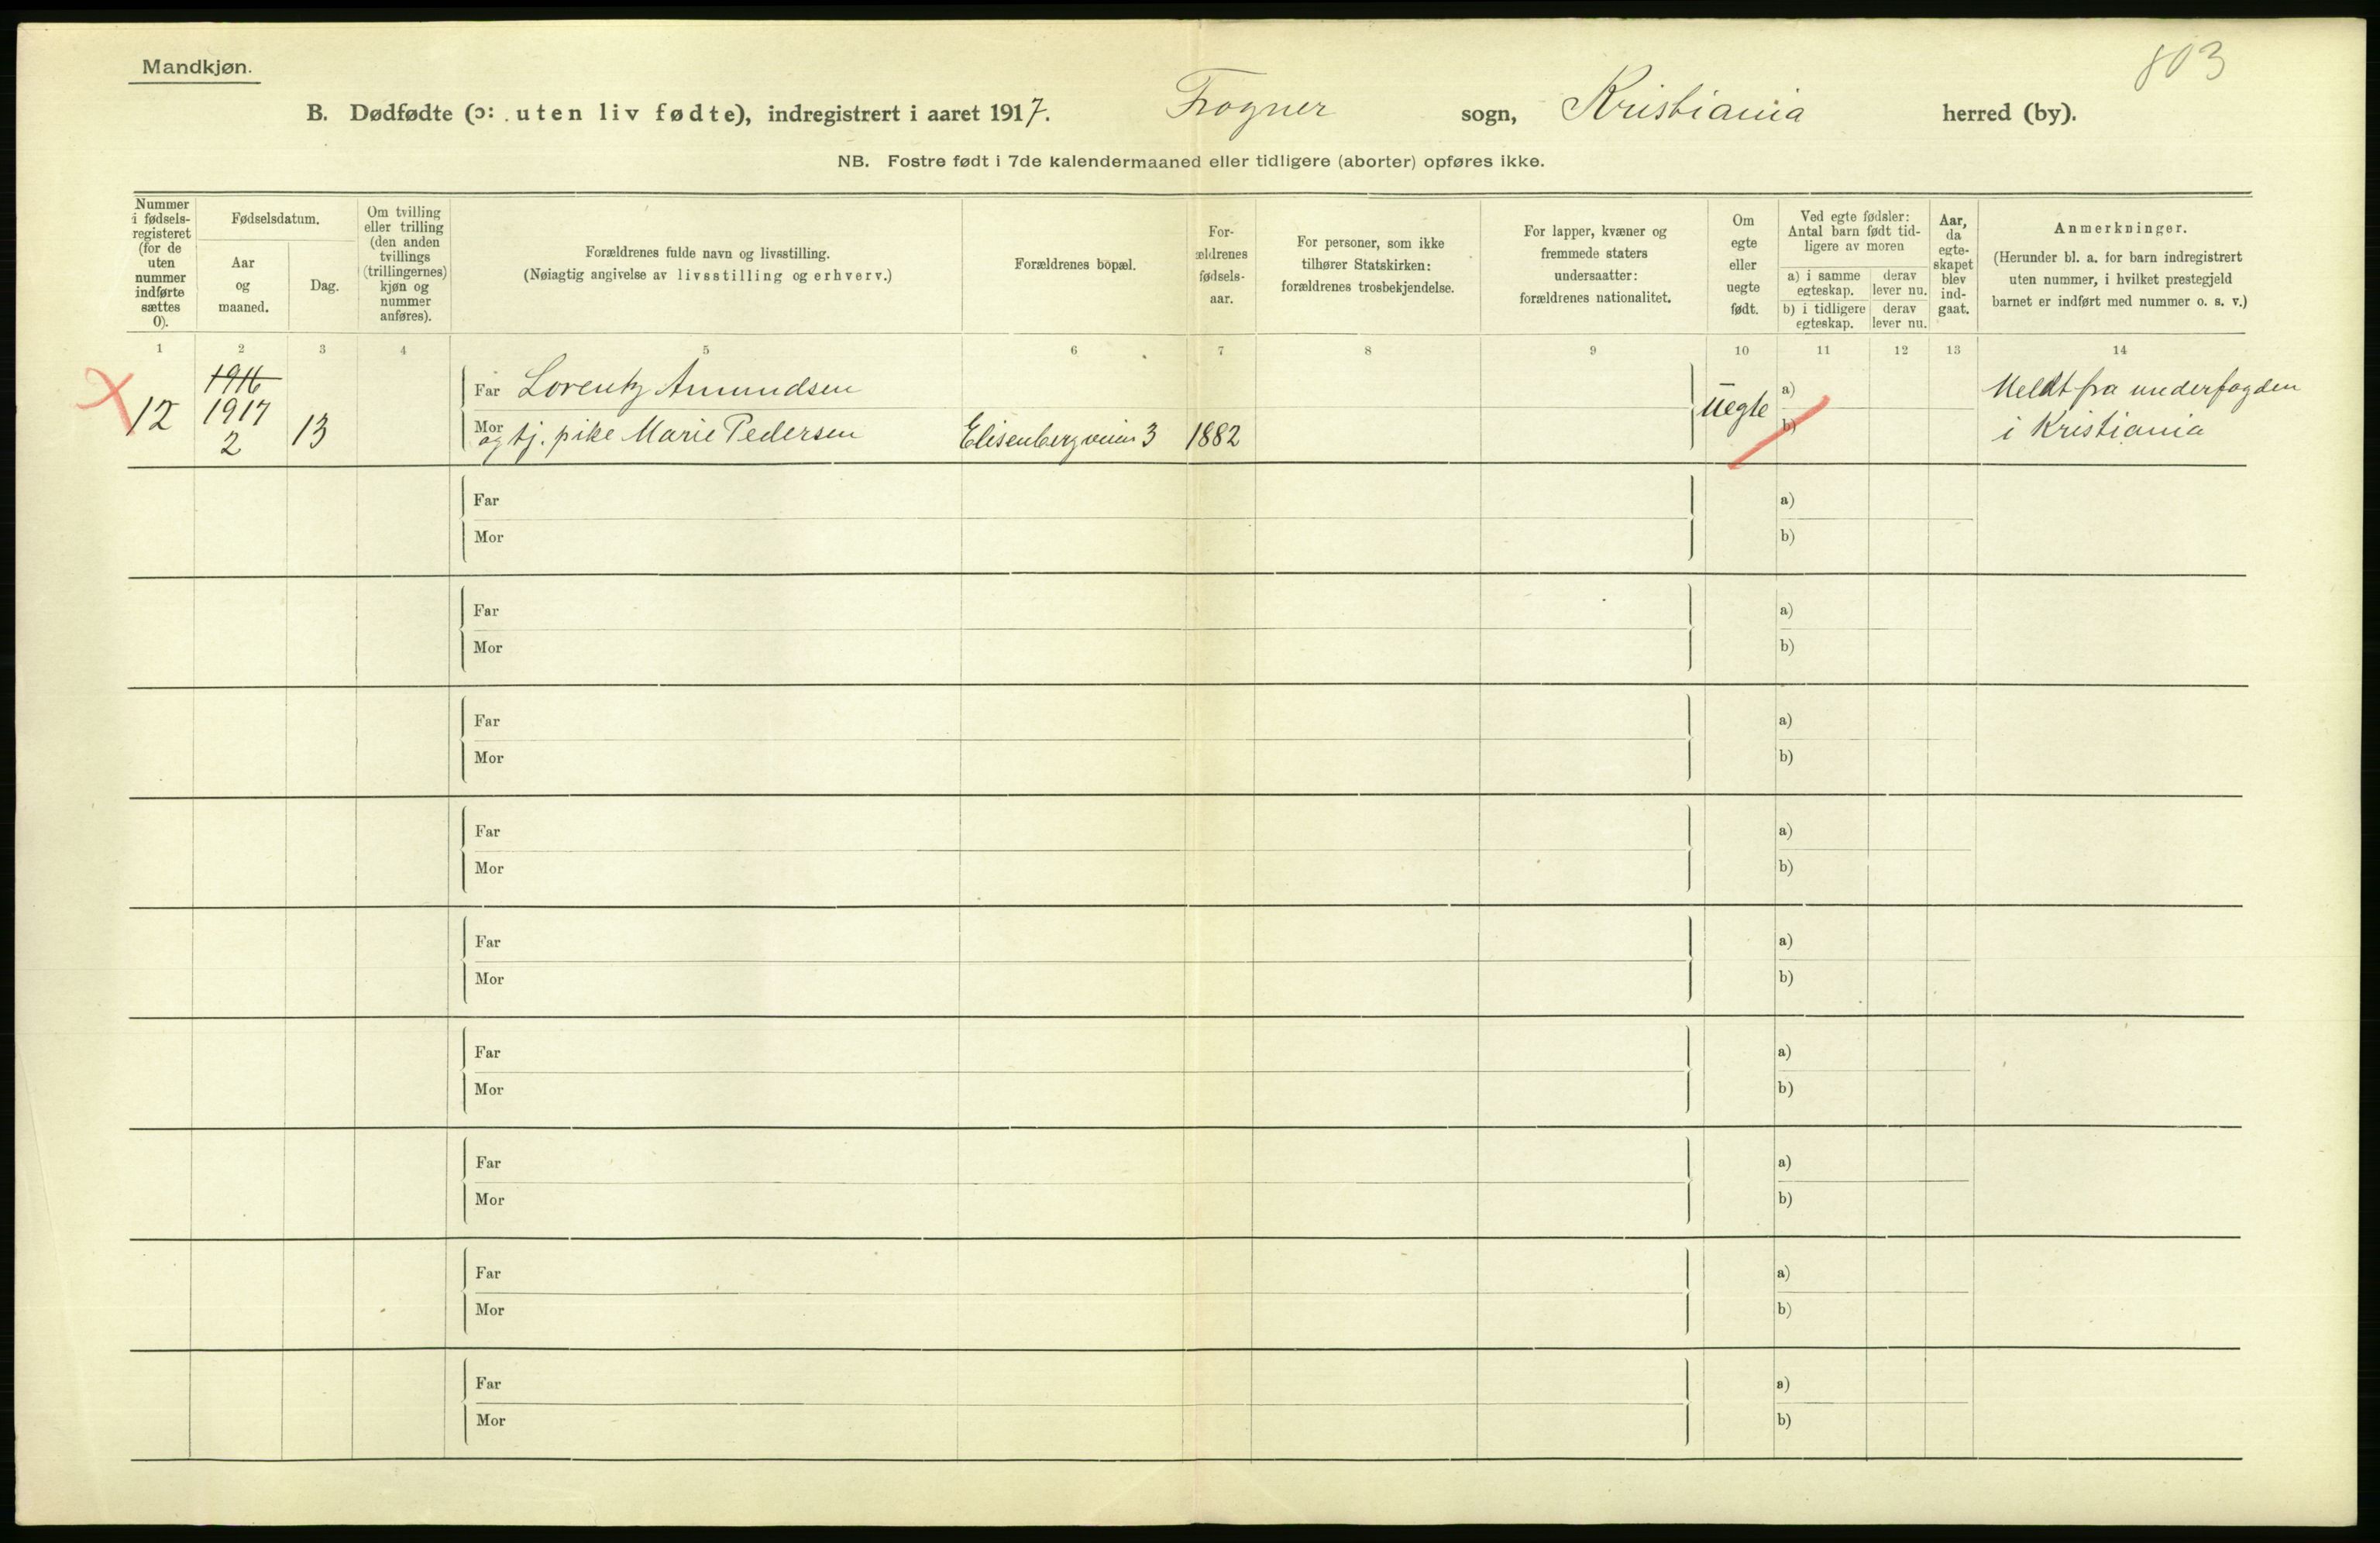 803
Mandkjøn.
B. Dødfødte (ɔ: uten liv fødte), indregistrert i aaret 1917. Frogner sogn, Kristiania herred (by).
NB. Fostre født i 7de kalendermaaned eller tidligere (aborter) opføres ikke.
Nummer
i fødsels-
registeret
(for de
uten
nummer
indførte
sættes
0).
Fødselsdatum.
Aar
og
maaned.
Dag.
Om tvilling
eller trilling
(den anden
tvillings
(trillingernes)
kjøn og
nummer
anføres).
Forældrenes fulde navn og livsstilling.
(Nøiagtig angivelse av livsstilling og erhverv.)
Forældrenes bopæl.
For-
ældrenes
fødsels-
aar.
For personer, som ikke
tilhører Statskirken:
forældrenes trosbekjendelse.
For lapper, kvæner og
fremmede staters
undersaatter:
forældrenes nationalitet.
Om
egte
eller
uegte
født.
Ved egte fødsler:
Antal barn født tid-
ligere av moren
a) i samme
egteskap.
derav
lever nu.
b) i tidligere
egteskap.
derav
lever nu.
Aar,
da
egte-
skapet
blev
ind-
gaat.
Anmerkninger.
(Herunder bl. a. for barn indregistrert
uten nummer, i hvilket prestegjeld
barnet er indført med nummer o. s. v.)
1 2 3 4 5 6 7 8 9 10 11 12 13 14
1916
12 1917 13
2
Far Lorentz Amundsen
Mor og tj. pike Marie Pedersen Elisenbergveien 3 1882
Uegte
a)
b)
Meldt fra underfogden
i Kristiania
Far a)
Mor b)
Far a)
Mor b)
Far a)
Mor b)
Far a)
Mor b)
Far a)
Mor b)
Far a)
Mor b)
Far a)
Mor b)
Far a)
Mor b)
Far a)
Mor b)